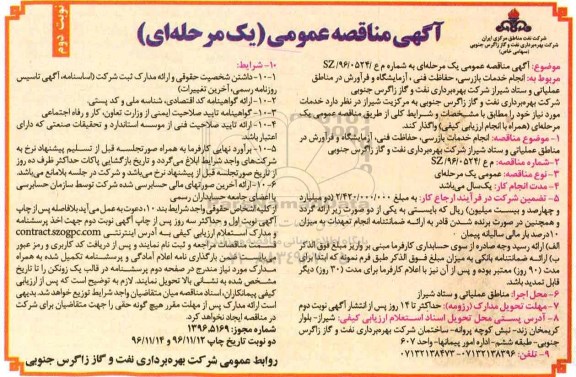 نوبت دوم
آگهی مناقصه عمومی (یک مرحله‌ای)
شرکت نفت مناطق مرکزی ایران
شرکت بهره‌برداری نفت و گاز زاگرس جنوبی
(سهامی خاص)
موضوع: آگهی مناقصه عمومی یک مرحله‌ای به شماره م ع /SZ/۹۶/۰۵۲۴
مربوط به: انجام خدمات بازرسی، حفاظت فنی، آزمایشگاه و فرآورش در مناطق
عملیاتی و ستاد شیراز شرکت بهره‌برداری نفت و گاز زاگرس جنوبی
شرکت بهره‌برداری نفت و گاز زاگرس جنوبی به مرکزیت شیراز در نظر دارد خدمات
مورد نیاز خود را مطابق با مشخصات و شرایط کلی از طریق مناقصه عمومی یک
مرحله‌ای (همراه با انجام ارزیابی کیفی) واگذار کند.
۱- موضوع مناقصه: انجام خدمات بازرسی، حفاظت فنی، آزمایشگاه و فرآورش در
مناطق عملیاتی و ستاد شیراز شرکت بهره‌برداری نفت و گاز زاگرس جنوبی
۲- شماره مناقصه: م ع /SZ/۹۶/۰۵۲۴
۳- نوع مناقصه: عمومی یک مرحله‌ای
۴- مدت انجام کار: یک‌سال می‌باشد
۵- تضمین شرکت در فرآیند ارجاع کار: به مبلغ ۲/۴۲۰/۰۰۰/۰۰۰ (دو میلیارد
و چهارصد و بیست میلیون) ریال که بایستی به یکی از دو صورت زیر ارائه گردد
و همچنین در صورت برنده شدن قادر به ارائه ضمانتنامه انجام تعهدات به میزان
۱۰ درصد بار مالی سالیانه پیمان
الف) ارائه رسید وجه صادره از سوی حسابداری کارفرما مبنی بر واریز مبلغ فوق‌الذکر
ب) ارائه ضمانتنامه بانکی به میزان مبلغ فوق الذکر طبق فرم نمونه که ابتدا برای
مدت (۹۰ روز) معتبر بوده و پس از آن نیز با اعلام کارفرما برای مدت (۳۰ روز) دیگر
قابل تمدید باشد.
۶- محل اجرا: مناطق عملیاتی و ستاد شیراز
۷- مهلت تحویل مدارک (رزومه): حداکثر تا ۱۴ روز پس از انتشار آگهی نوبت دوم
۸- آدرس پستی محل تحویل اسناد استعلام ارزیابی کیفی: شیراز- بلوار
کریمخان زند- نبش کوچه پروانه- ساختمان شرکت بهره‌برداری نفت و گاز زاگرس
جنوبی- طبقه ششم- اداره امور پیمانها- واحد ۶۰۷
۹- تلفن: ۰۷۱۳۲۱۳۸۳۹۶-۰۷۱۳۲۱۳۸۴۷۳
۱۰- شرایط:
۱-۱۰- داشتن شخصیت حقوقی و ارائه مدارک ثبت شرکت (اساسنامه، آگهی تاسیس
روزنامه رسمی، آخرین تغییرات)
۲-۱۰- ارائه گواهینامه کد اقتصادی، شناسه ملی و کد پستی.
۳-۱۰- گواهینامه تایید صلاحیت ایمنی از وزارت تعاون، کار و رفاه اجتماعی
۴-۱۰- ارائه تایید صلاحیت فنی از موسسه استاندارد و تحقیقات صنعتی که دارای
اعتبار باشد.
۵-۱۰- برآورد نهایی کارفرما به همراه صورتجلسه قبل از تسلیم پیشنهاد نرخ به
شرکت‌های واجد شرایط ابلاغ می‌گردد و تاریخ بازگشایی پاکات حداکثر ظرف ده روز
از تاریخ صورتجلسه قبل از پیشنهاد نرخ می‌باشد و شرکت در جلسه بلامانع می‌باشد.
۶-۱۰- ارائه آخرین صورتهای مالی حسابرسی شده شرکت توسط سازمان حسابرسی
یا اعضای جامعه حسابداران رسمی
از کلیه اشخاص حقوقی واجد شرایط بند ۱۰، دعوت به عمل می‌آید بلافاصله پس از چاپ
آگهی نوبت اول و حداکثر سه روز پس از چاپ آگهی نوبت دوم جهت اخذ پرسشنامه
و مدارک استعلام ارزیابی کیفی به آدرس اینترنتی contract.szogpc.com
قسمت مناقصات مراجعه و ثبت نام نمایند و پس از دریافت کد کاربری و رمز عبور
نسبت به ضمن بارگذاری نامه اعلام آمادگی و پرسشنامه تکمیل شده به همراه
مدارک مورد نیاز مندرج در صفحه دوم پرسشنامه در قالب یک زونکن را تا تاریخ
مشخص شده به نشانی بالا تحویل نمایند. لازم به توضیح است که پس از ارزیابی
کیفی پیمانکاران، اسناد مناقصه میان متقاضیان واجد شرایط توزیع خواهد شد. بدیهی
است ارائه مدارک پس از مهلت مقرر هیچ گونه حقی را جهت متقاضیان برای شرکت
در مناقصه ایجاد نخواهد کرد.
شماره مجوز: ۱۳۹۶.۵۱۶۹
دو نوبت تاریخ چاپ ۹۶/۱۱/۱۲ و ۹۶/۱۱/۱۴
روابط عمومی شرکت بهره‌برداری نفت و گاز زاگرس جنوبی